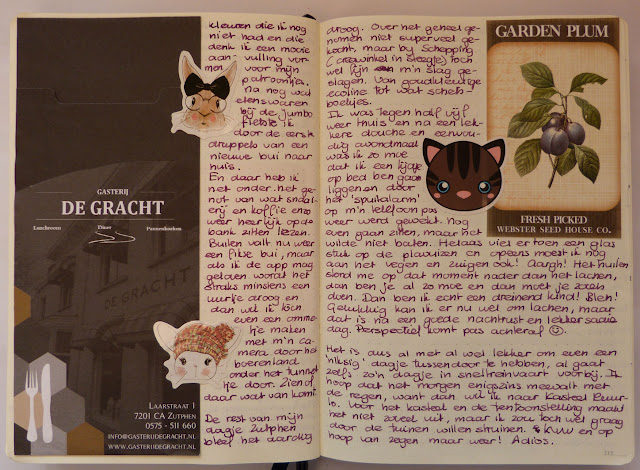 GASTERIJ
DE GRACHT
Lunchroom
Diner
Pannenkoeken
DE GRACHT
LAARSTRAAT 1
7201 CA ZUTPHEN
0575 - 511 660
INFO@GASTERIJDEGRACHT.NL
WWW.GASTERIJDEGRACHT.NL
kleuren die ik nog
niet had en die
denk ik een mooie
aanvulling vor-
men voor mijn
patroontjes.
Na nog wat
etenswaren
bij de Jumbo
fietste ik
door de eerste
druppels van een
nieuwe bui naar
huis.
En daar heb ik
net onder het ge-
not van wat
en koffie
weer heerlijk op de
bank zitten lezen.
Buiten valt nu weer
een flinke bui, maar
als ik de app mag
geloven wordt het
straks minstens een
uurtje droog en
dan wil ik toch
even een omme-
tje maken
met m'n ca-
mera door het
boerenland
onder het tunnel-
tje door. Zien of
daar wat van komt.
De rest van mijn
dagje Zutphen
bleef het aardig
droog. Over het geheel ge-
nomen niet superveel ge-
kocht, maar bij Schepping
(creawinkel in steegje) toch
wel fijn m'n slag ge-
slagen. Van goudkleurige
ecoline tot wat schets-
boekjes.
Ik was tegen half vijf
weer thuis en na een lek-
kere douche en eenvou-
dig avondmaal
was ik zo moe
dat ik een tijdje
op bed ben gaan
liggen en door
het
op m'n telefoon pas
weer werd gewekt. Nog
even gaan zitten, maar het
wilde niet baten. Helaas viel er toen een glas
stuk op de plavuizen en opeens moest ik nog
aan het vegen en zuigen ook! Aargh! Het huilen
stond me op dat moment nader dan het lachen,
dan ben je al zo moe en dan moet je zoiets
doen. Dan ben ik echt een dreinend kind! Bleh!
Gelukkig kan ik er nu wel om lachen, maar
dat is na een goede nachtrust en lekker saaie
dag. Perspectief komt pas achteraf ☺.
Het is dus al met al wel lekker om even een
'niksig' dagje tussendoor te hebben, al gaat
zelfs zo'n dagje in sneltreinvaart voorbij. Ik
hoop dat het morgen enigszins meevalt met
de regen, want dan wil ik naar Kasteel Ruur-
lo. Voor het kasteel en de tentoonstelling maakt
het niet zoveel uit, maar ik zou toch wel graag
door de tuinen willen struinen. KVW en op
hoop van zegen maar weer! Adios.
GARDEN PLUM
FRESH PICKED
WEBSTER SEED HOUSE CO.